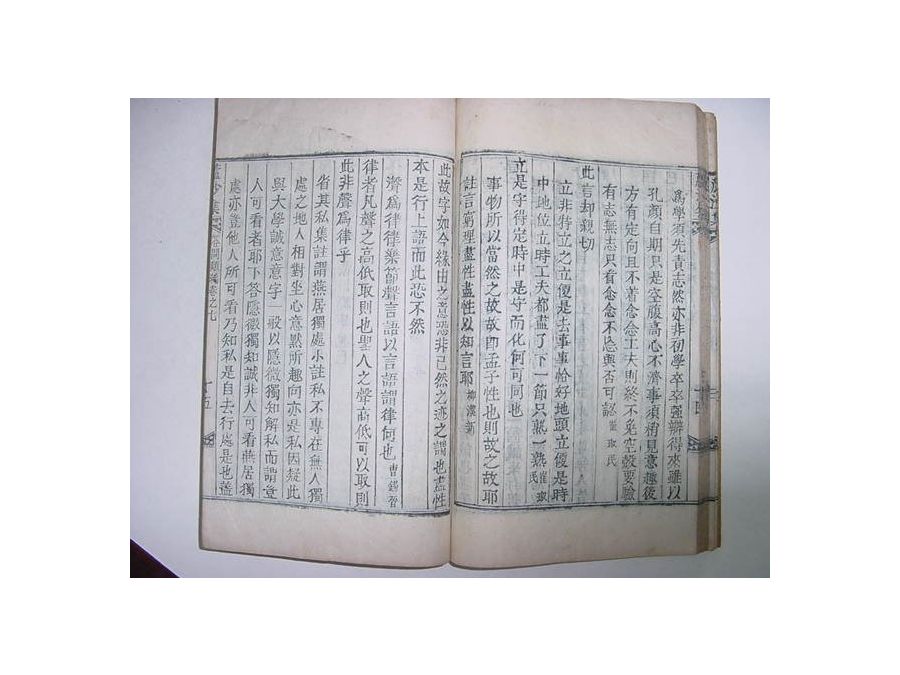 爲學須先責志然亦非初學卒卒强辦得來雖以
孔顔自期只是空腹高心不濟事須稍見意趣後
方有定向且不着念念工夫則終不免空殼要驗
有志無志只看念念不忘與否可認 崔琡民
此言却親切
立非特立之立便是去事事恰好地頭立便是時
中地位立時工夫都盡了下一節只熟一熟 崔琡民
立是守得定時中是守而化何可同也
事物所以當然之故故即孟子性也則故之故耶
註言窮理盡性盡性以知言耶 柳漢新
此故字如今緣由之意恐非已然之迹之謂也盡性
本是行上語而此恐不然
濟爲律律樂節聲言語以言語謂律何也 曹錫晋
律者凡聲之高低取則也聖人之聲高低可以取則
此非聲爲律乎
省其私集註謂燕居獨處小註私不專在無人獨
處之地人相對坐心意默所趣向亦是私因疑此
與大學誠意意字一般以隱微獨知解私而謂豈
人可看者耶下答隱微獨知誠非人可看燕居獨
處亦豈他人所可看乃知私是自去行處是也蓋
十五